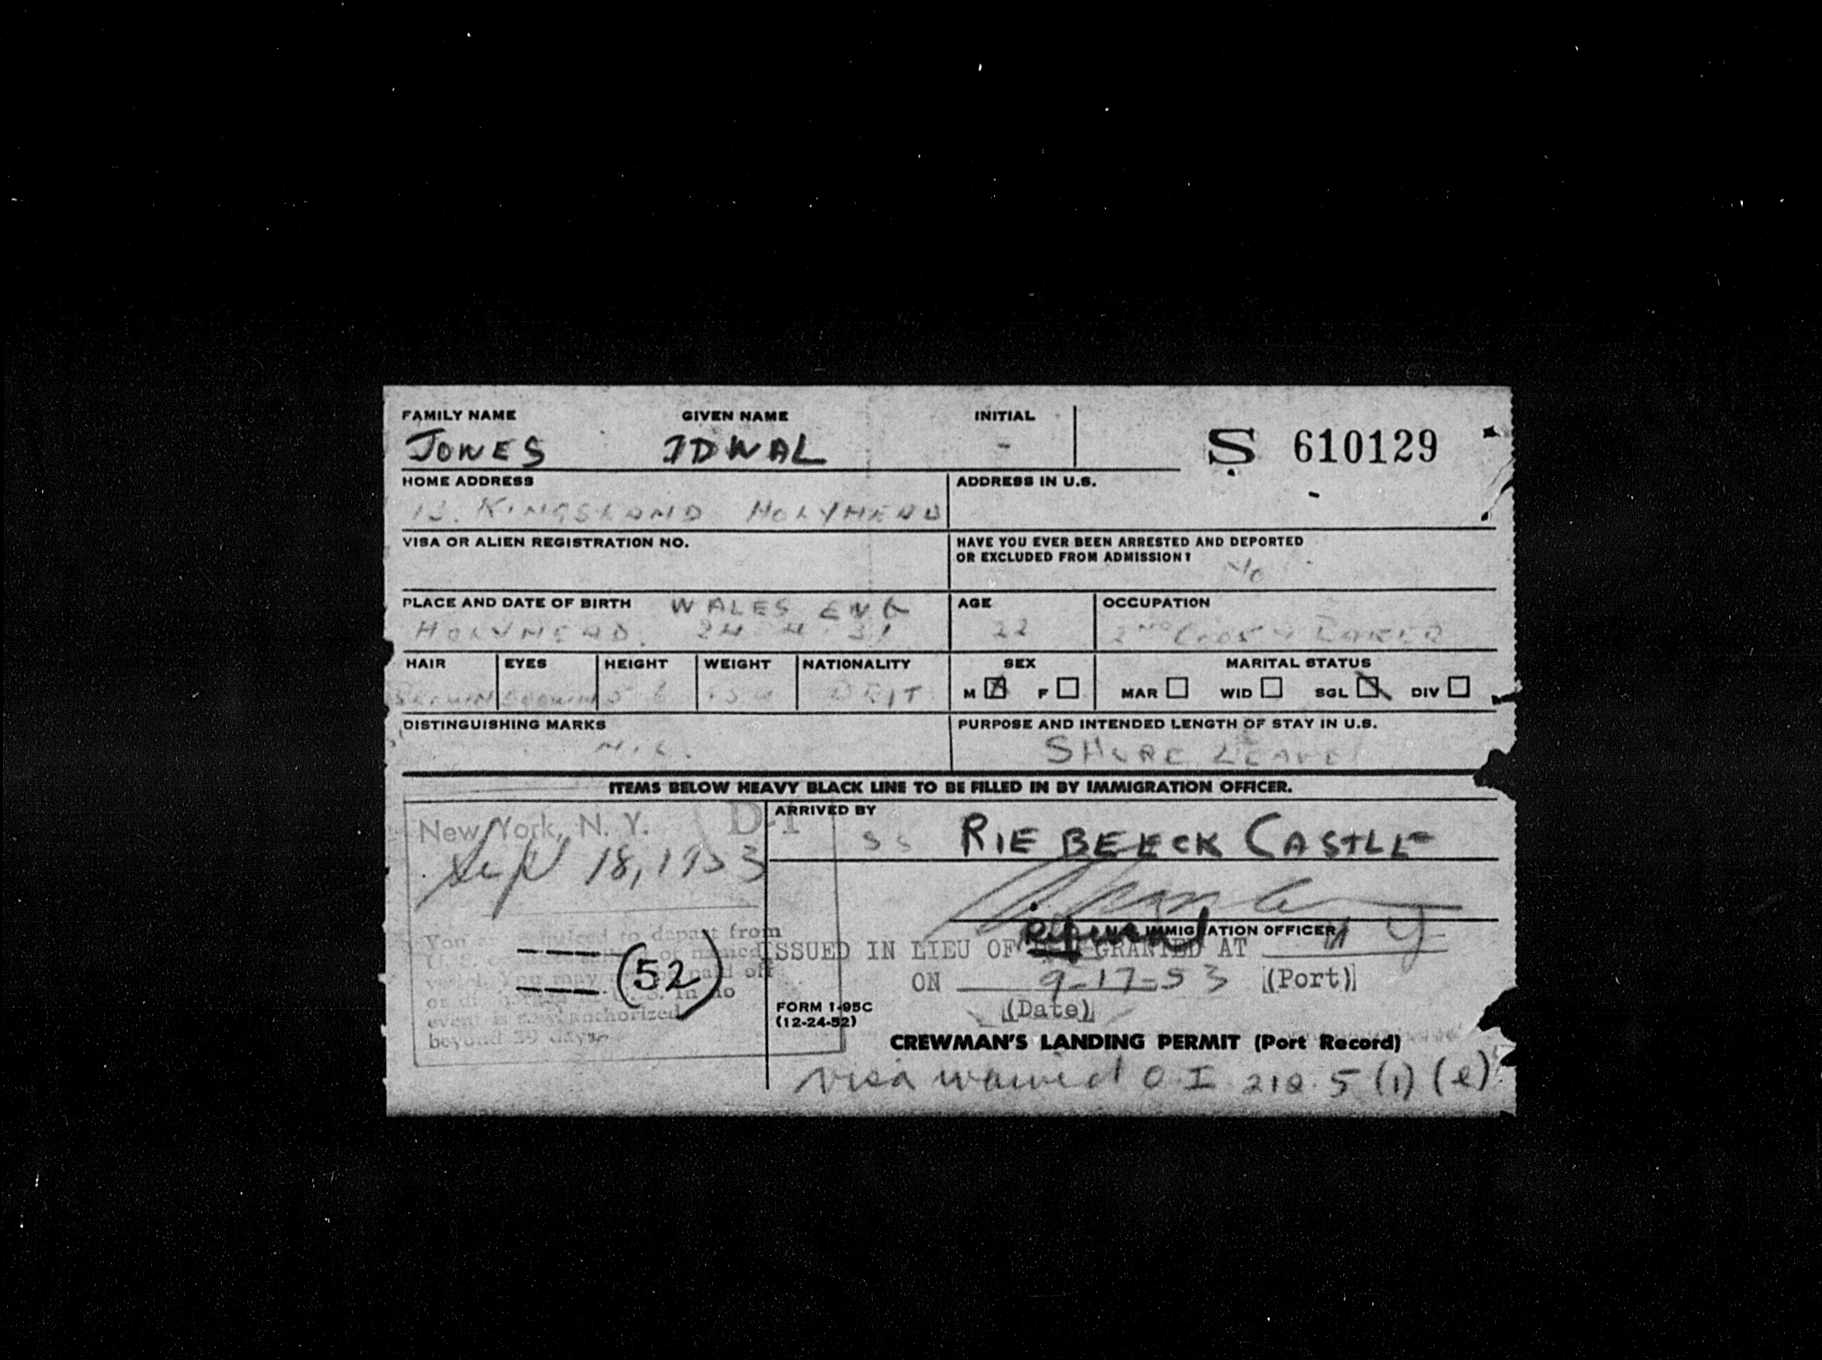 FAMILY NAME GIVEN NAME INITIAL
JONES IDWAL - S 610129
HOME ADDRESS ADDRESS IN U.S.
KINGSLAND HOLYHEAD -
VISA OR ALIEN REGISTRATION NO. HAVE YOU EVER BEEN ARRESTED AND DEPORTED
OR EXCLUDED FROM ADMISSION?
No
PLACE AND DATE OF BIRTH WALES ENG AGE OCCUPATION
HOLYHEAD. 24 - 4 - 31 22 2ND COOK & BAKER
HAIR EYES HEIGHT WEIGHT NATIONALITY SEX MARITAL STATUS
BROWN BROWN 5 6 BRIT M F MAR WID SGL DIV
DISTINGUISHING MARKS PURPOSE AND INTENDED LENGTH OF STAY IN U.S.
SHORE LEAVE
ITEMS BELOW HEAVY BLACK LINE TO BE FILLED IN BY IMMIGRATION OFFICER.
New York, N. Y. D-1 ARRIVED BY
Sept 18, 1953 SS RIEBEECK CASTLE
IMMIGRATION OFFICER
You to depart from
ISSUED IN LIEU OF GRANTED AT N Y
(52) ON 9-17-53 (Port)
In no
event is authorized
beyond 29 days.
(Date)
FORM I-95C
(12-24-52)
CREWMAN'S LANDING PERMIT (Port Record)
Visa waived O I 212.5 (1) (e)